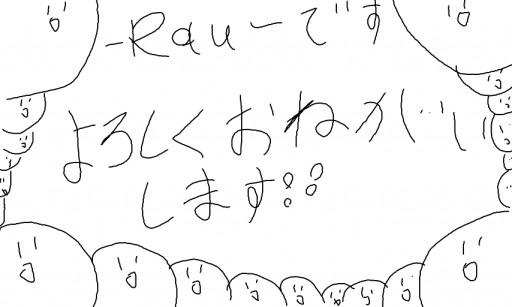 -Rau-です
よろしくおねがいし
します!!